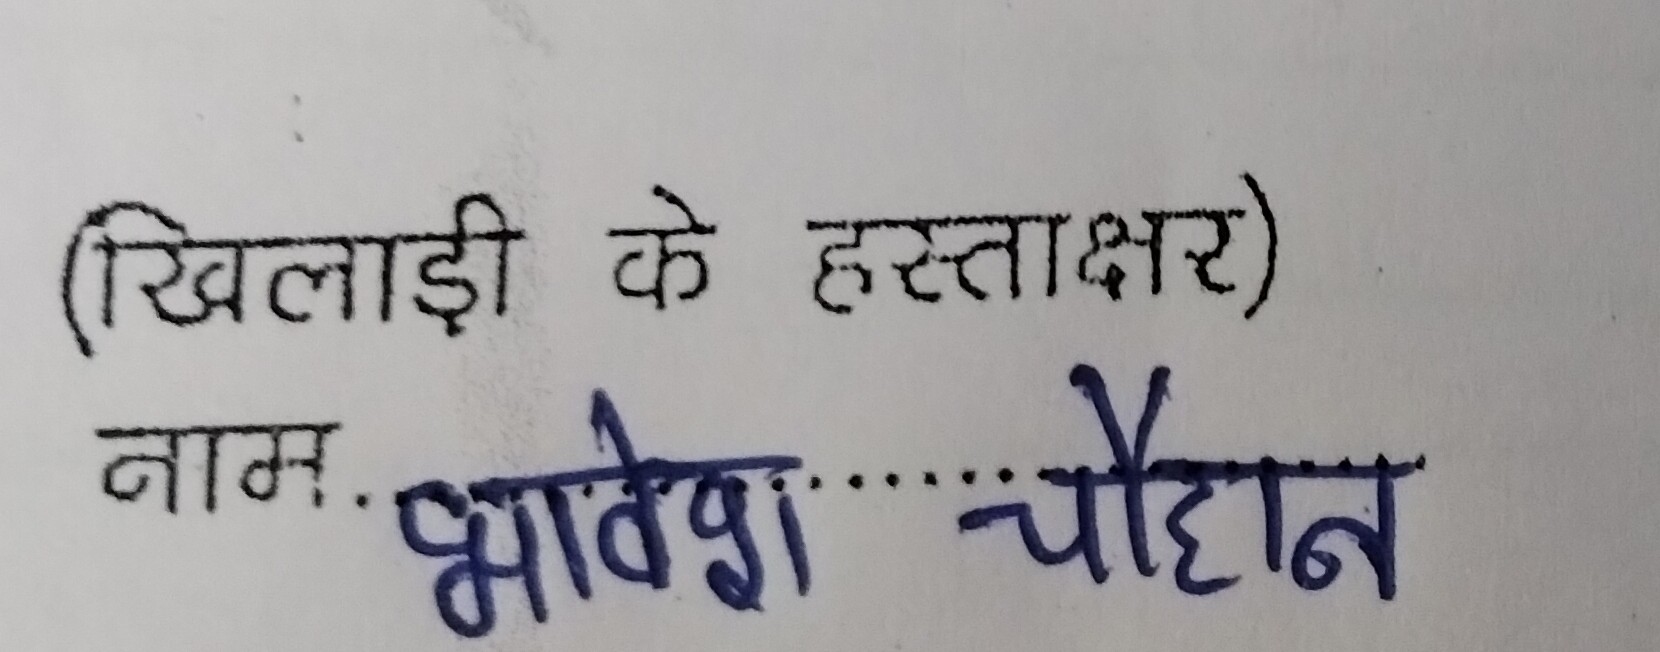 (खिलाड़ी के हस्ताक्षर)
नाम. भावेश ...... चौहान